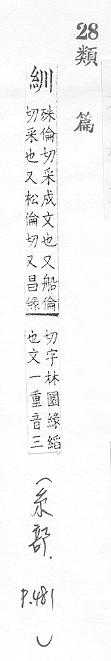 28類篇
紃
硃倫切采成文也又船倫
切采也又松倫切又昌緣
切字林圜緣縚
也文一重音三
（糸部.
P.481）